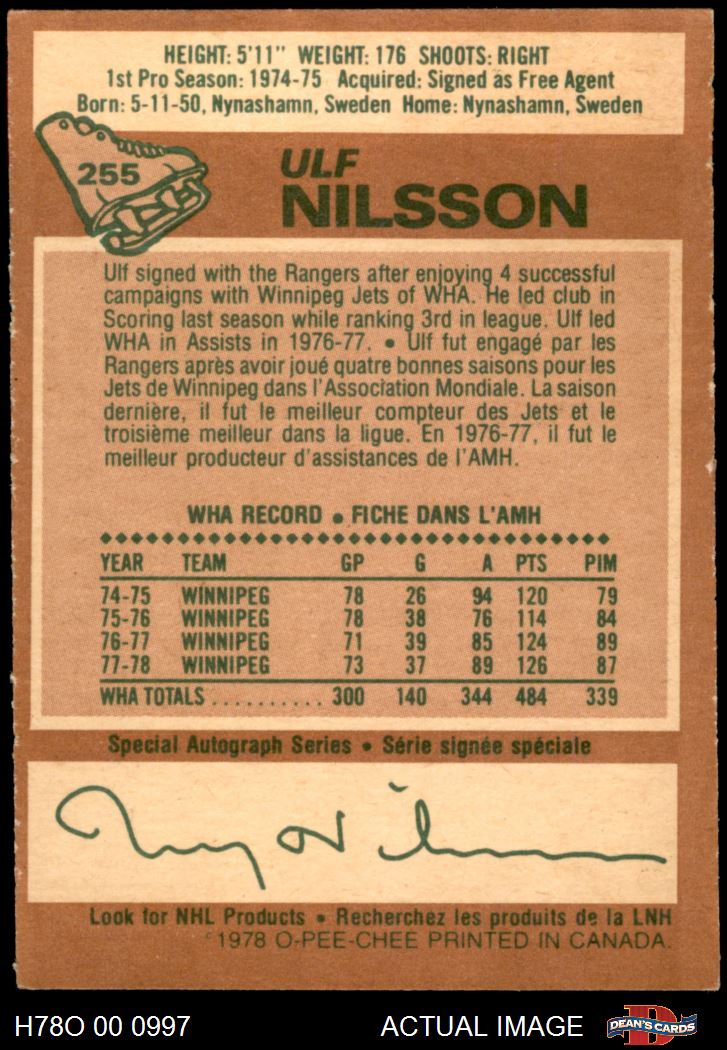 HEIGHT: 5'11" WEIGHT: 176 SHOOTS: RIGHT
1st Pro Season: 1974-75 Acquired: Signed as Free Agent
Born: 5-11-50, Nynashamn, Sweden Home: Nynashamn, Sweden
255
ULF
NILSSON
Ulf signed with the Rangers after enjoying 4 successful
campaigns with Winnipeg Jets of WHA. He led club in
Scoring last season while ranking 3rd in league. Ulf led
WHA in Assists in 1976-77. • Ulf fut engagé par les
Rangers après avoir joué quatre bonnes saisons pour les
Jets de Winnipeg dans l'Association Mondiale. La saison
dernière, il fut le meilleur compteur des Jets et le
troisième meilleur dans la ligue. En 1976-77, il fut le
meilleur producteur d'assistances de l'AMH.
WHA RECORD • FICHE DANS L'AMH
YEAR TEAM GP G A PTS PIM
74-75 WINNIPEG 78 26 94 120 79
75-76 WINNIPEG 78 38 76 114 84
76-77 WINNIPEG 71 39 85 124 89
77-78 WINNIPEG 73 37 89 126 87
WHA TOTALS .......... 300 140 344 484 339
Special Autograph Series • Série signée spéciale
Look for NHL Products • Recherchez les produits de la LNH
©1978 O-PEE-CHEE PRINTED IN CANADA.
H78O 00 0997 ACTUAL IMAGE DEAN'S CARDS